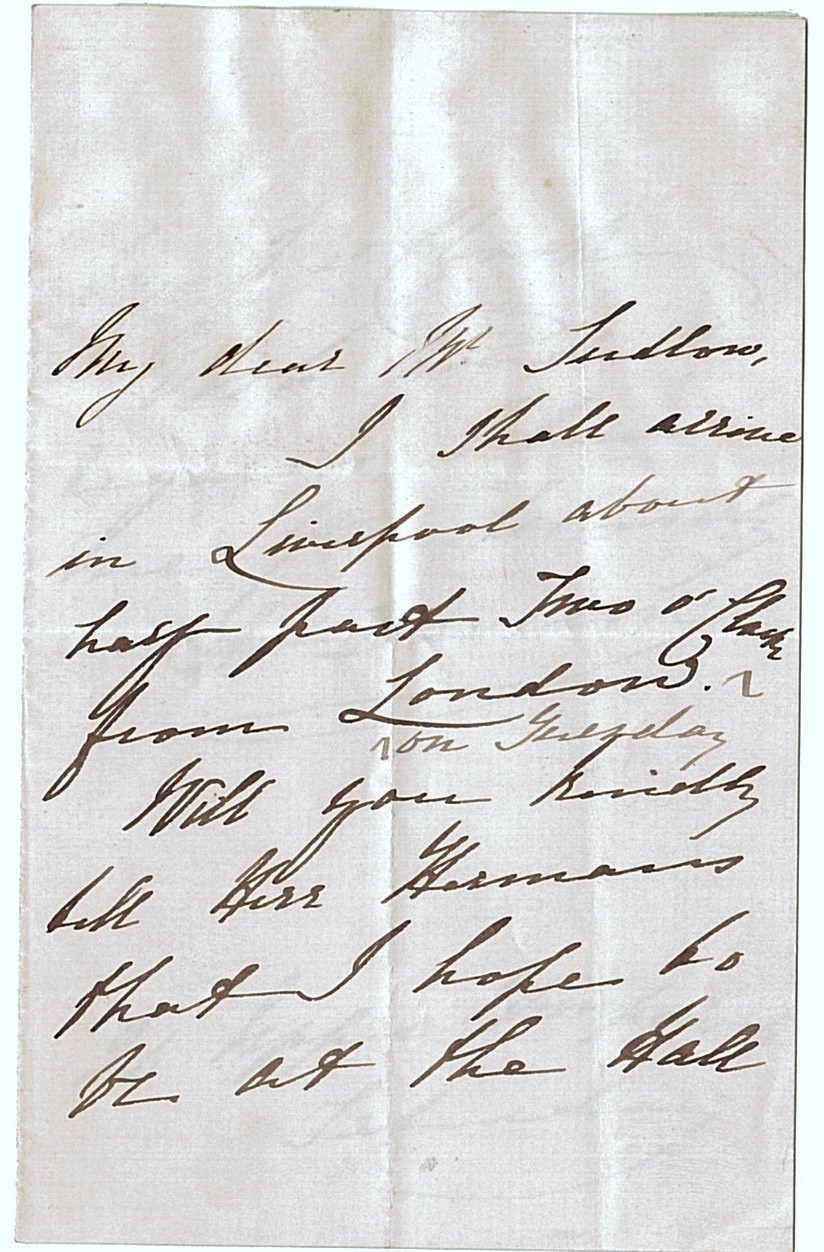 My dear Mr Sudlow,
I shall arrive
in Liverpool about
half past Two o'Clock
from London.
on Tuesday
Will you kindly
tell Herr Hermans
that I hope to
be at the Hall